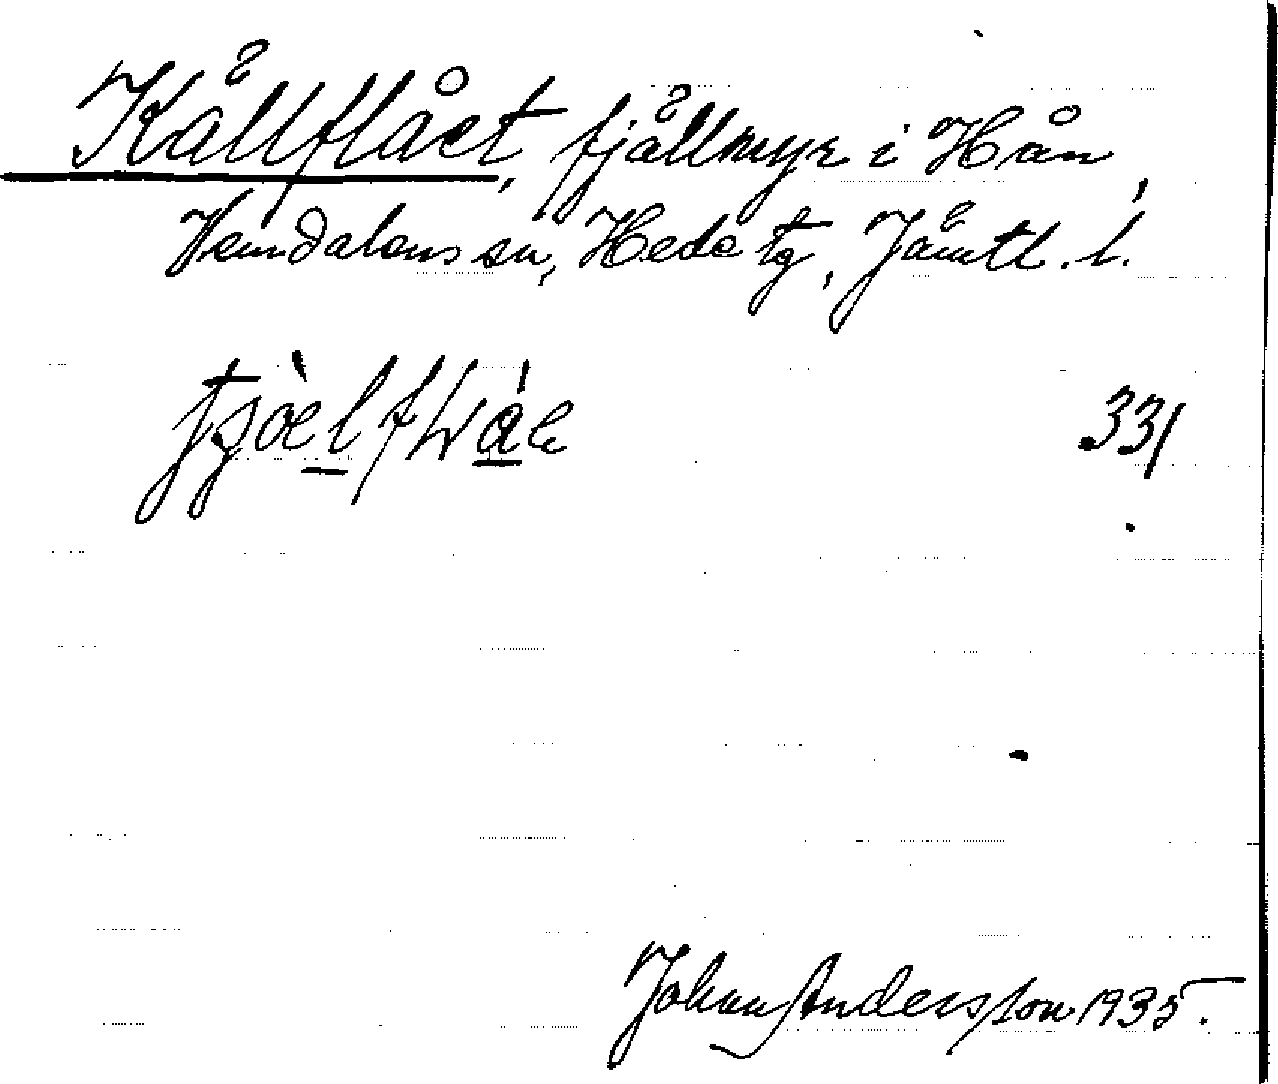 Källflået, fjällmyr i Hån,
Vemdalens sn, Hede tg, Jämtl. l.
331
Johan Andersson 1935.